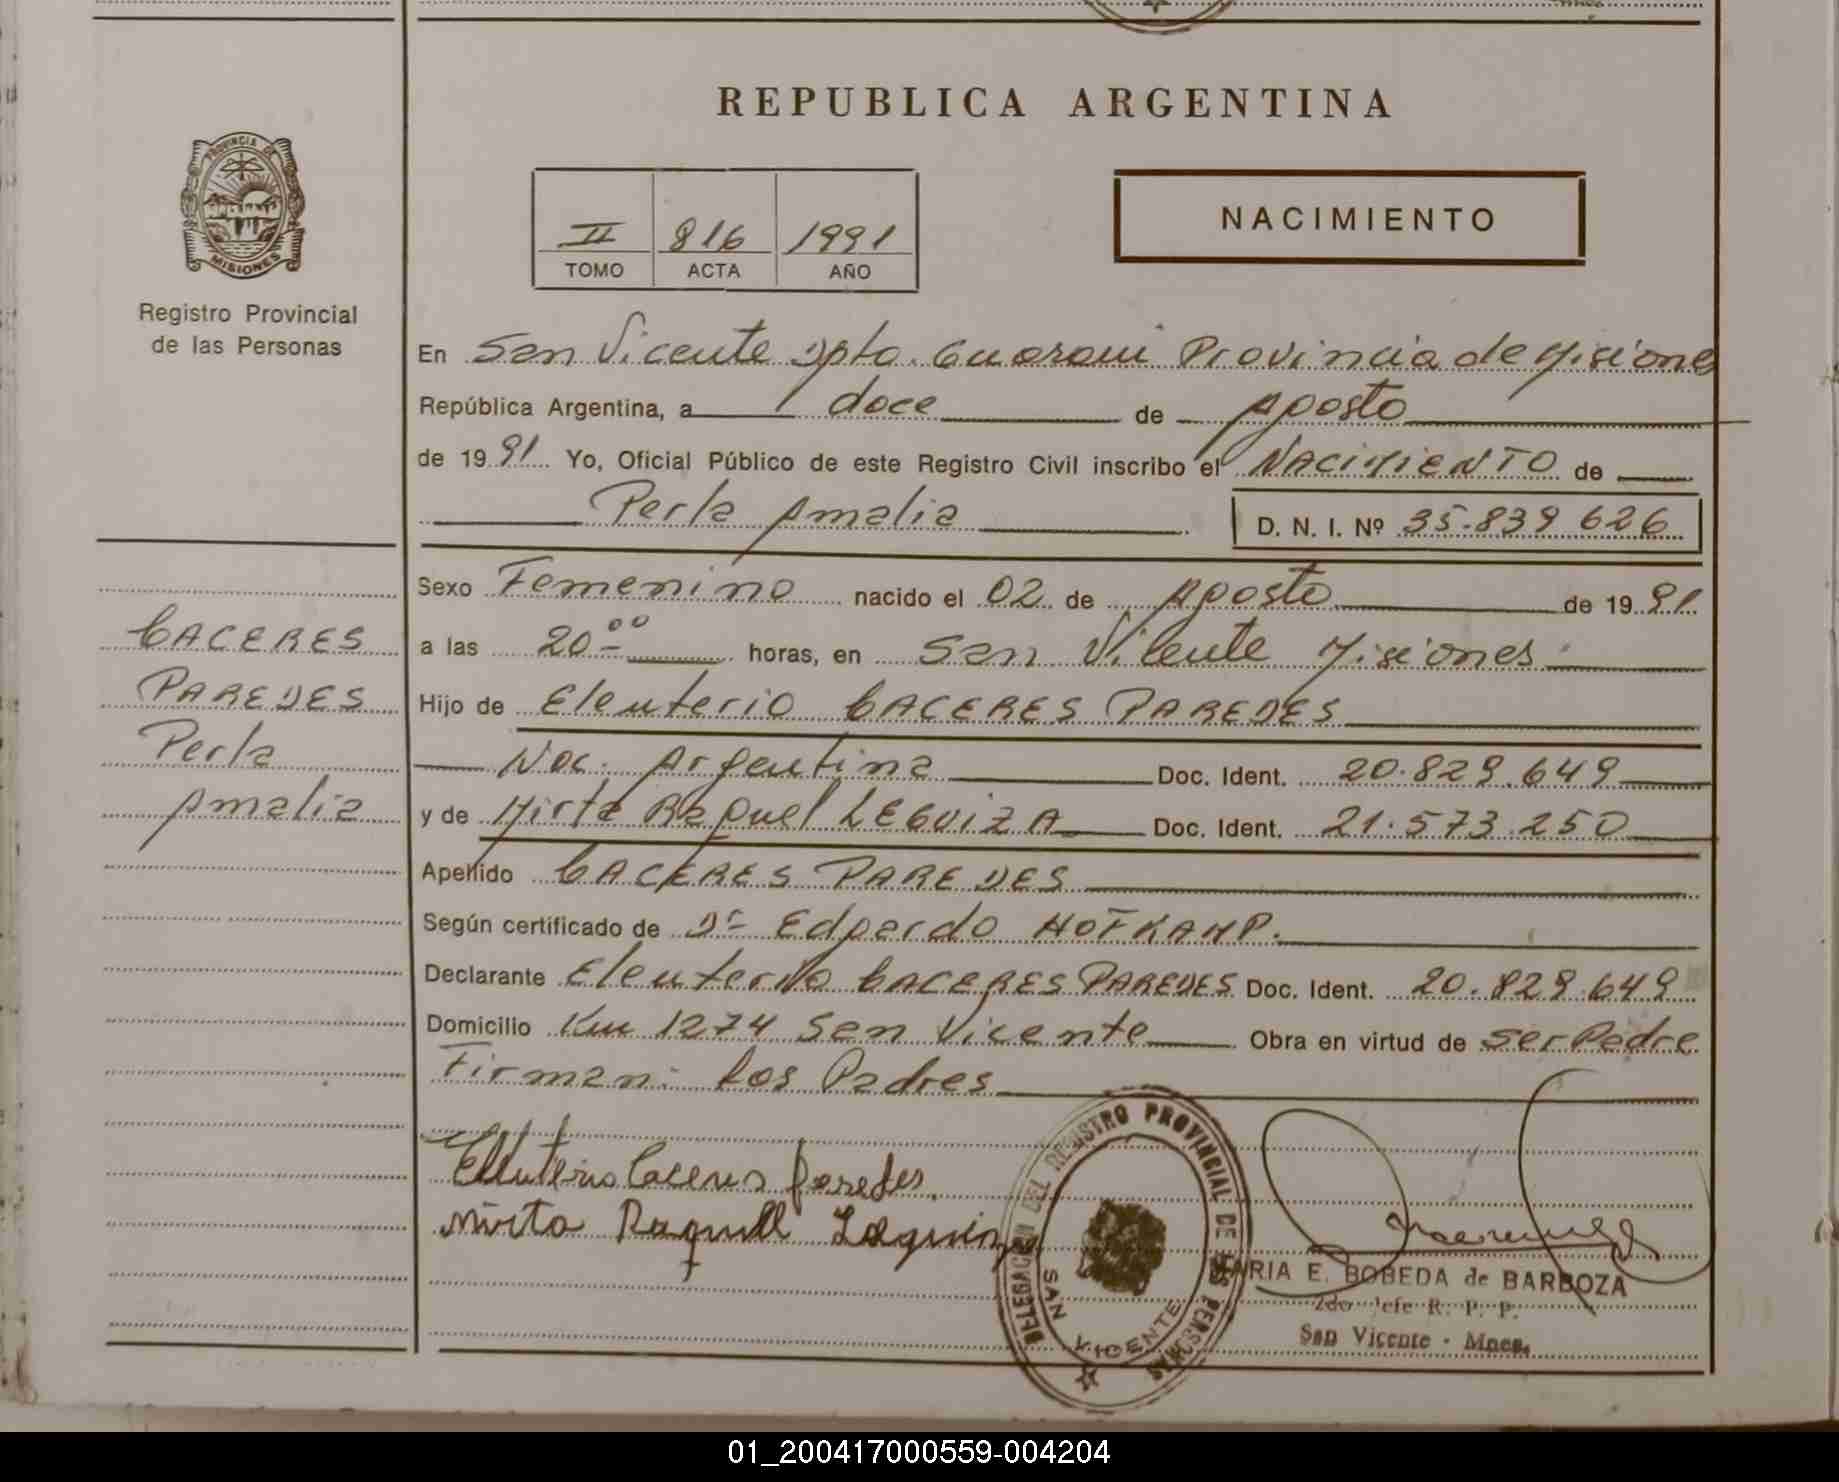 REPUBLICA ARGENTINA
PROVINCIA DE
MISIONES
Registro Provincial
de las Personas
II 816 1991
TOMO ACTA AÑO
NACIMIENTO
En San Vicente Dpto. Guarani Provincia de Misiones
República Argentina, a doce de Agosto
de 19 91 Yo, Oficial Público de este Registro Civil inscribo el NACIMIENTO de
Perla Amalia D. N. I. Nº 35.839.626
CACERES
PAREDES
Perla
Amalia
Sexo Femenino nacido el 02 de Agosto de 19 91
a las 20 00 horas, en San Vicente Misiones
Hijo de Eleuterio CACERES PAREDES
Nac. Argentina Doc. Ident. 20.829.649
y de Mirta Raquel LEGUIZA Doc. Ident. 21.573.250
Apellido CACERES PAREDES
Según certificado de Dr Edgardo HOFKAMP.
Declarante Eleuterio CACERES PAREDES Doc. Ident. 20.829.649
Domicilio Km 1274 San Vicente Obra en virtud de ser Padre
Firman: Los Padres
Eleuterio Caceres Paredes
Mirta Raquell Leguiza
DELEGACION DEL REGISTRO PROVINCIAL DE LAS PERSONAS
SAN VICENTE
MARIA E. BOBEDA de BARBOZA
2do Jefe R. P. P.
San Vicente - Mnes.
01_200417000559-004204